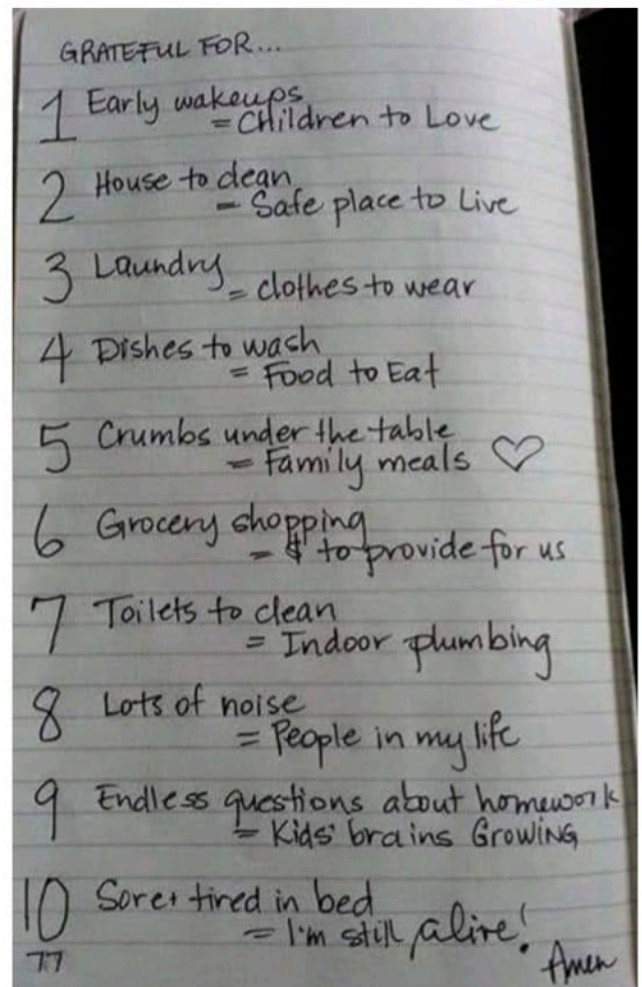 GRATEFUL FOR...
1 Early wakeups
= Children to Love
2 House to clean
= Safe place to Live
3 Laundry
= clothes to wear
4 Dishes to wash
= Food to Eat
5 Crumbs under the table
= Family meals ♡
6 Grocery shopping
= $ to provide for us
7 Toilets to clean
= Indoor plumbing
8 Lots of noise
= People in my life
9 Endless questions about homework
= Kids' brains GROWING
10 Sore + tired in bed
= I'm still alive!
77
Amen